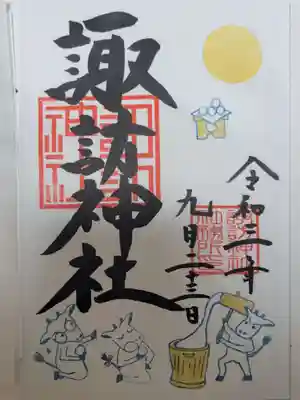 令和三年
九月二十三日
諏訪神社